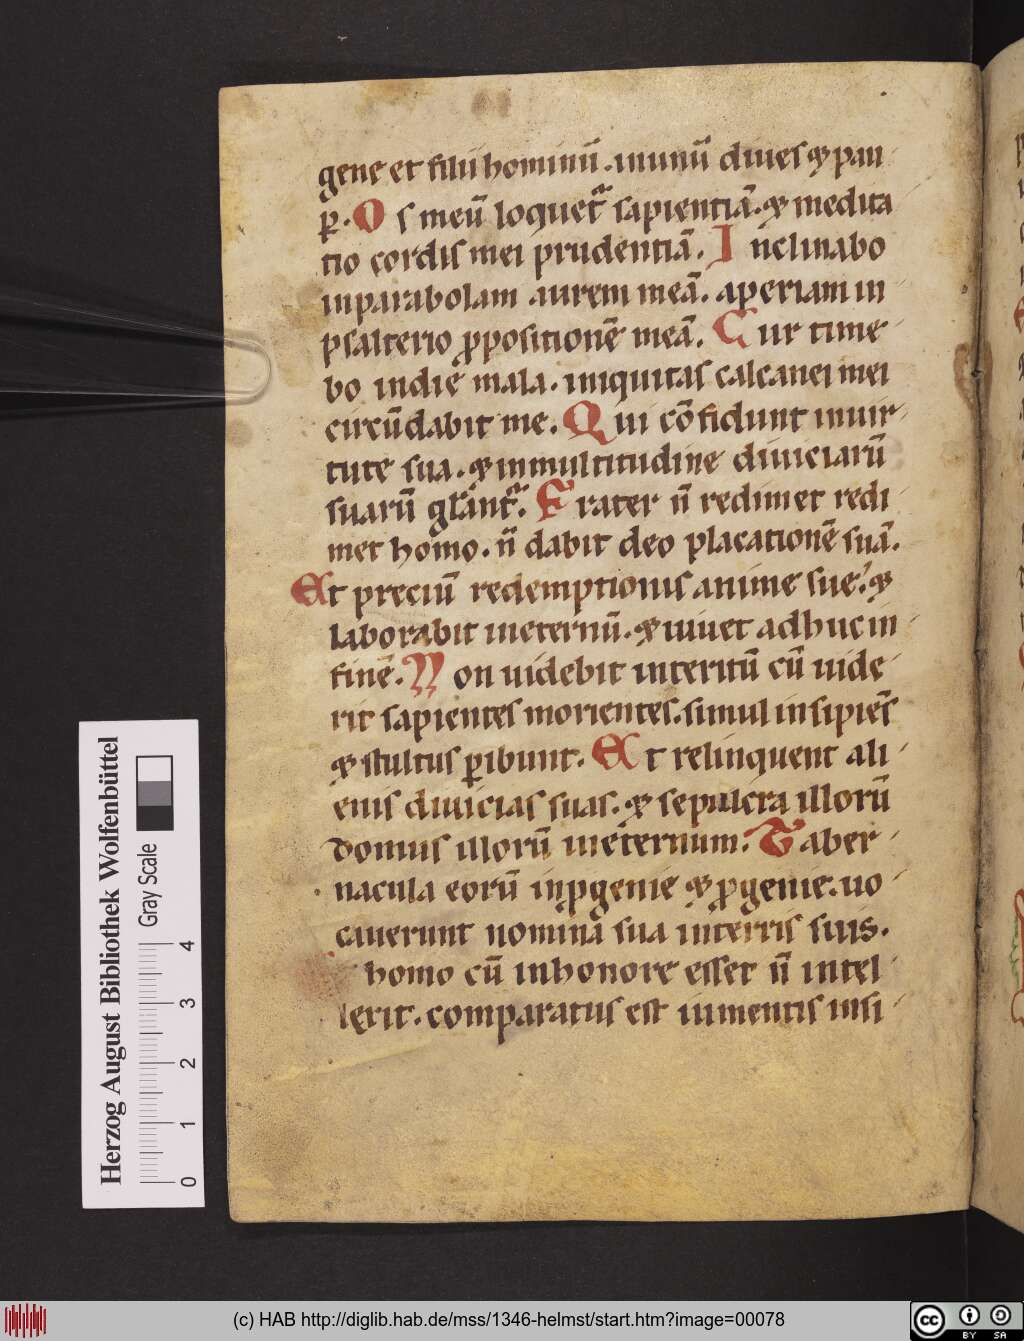 gene et filii hominū .inunū diues ⁊ pau
ꝑ. Os meū loquet᷑ sapientiā. ⁊ medita
tio cordis mei prudentiā. Inclinabo
inparabolam aurem meā. aperiam in
psalterio ꝓpositionē meā. Cur time
bo indie mala. iniquitas calcanei mei
circūdabit me. Qui cōfidunt inuir
tute sua. ⁊ inmultitudine diuiciarū
suarū gl̄ant᷑. Frater n̄ redimet redi
met homo. n̄ dabit deo placationē suā.
Et preciū redemptionis anime sue. ⁊
laborabit ineternū. ⁊ uiuet adhuc in
finē. Non uidebit interitū cū uide
rit sapientes morientes. simul insipiēs
⁊ stultus ꝑibunt. Et relinquent ali
enis diuicias suas. ⁊ sepulcra illorū
domus illorū ineternum. Taber
nacula eorū inpgenie ⁊ ꝓgenie. uo
cauerunt nomina sua interris suis.
homo cū inhonore esset n̄ intel
lexit. comparatus est iumentis insi
Herzog August Bibliothek Wolfenbüttel
Gray Scale
0 1 2 3 4
(c) HAB http://diglib.hab.de/mss/1346-helmst/start.htm?image=00078
cc BY SA